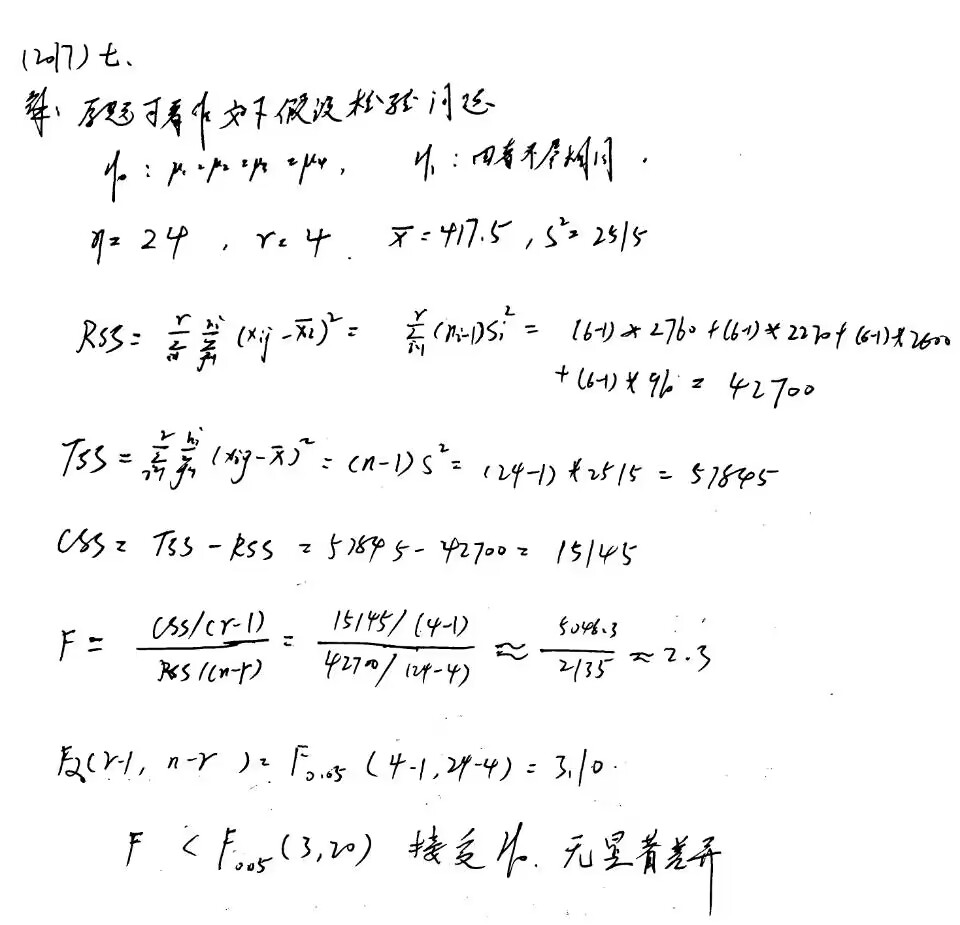 (2017) 七、
解: 原题可看作如下假设检验问题
H₀: μ₁=μ₂=μ₃=μ₄, H₁: 四者不尽相同.
n=24, r=4. x̄=417.5, S²=2515
RSS= Σᵢ₌₁ʳ Σⱼ₌₁ⁿⁱ (xᵢⱼ-x̄ᵢ)² = Σᵢ₌₁ʳ (nᵢ-1)Sᵢ² = (6-1)*2760+(6-1)*2220+(6-1)*2600
+(6-1)*960 = 42700
TSS = Σᵢ₌₁ʳ Σⱼ₌₁ⁿⁱ (xᵢⱼ-x̄)² = (n-1)S² = (24-1)*2515 = 57845
CSS = TSS-RSS = 57845-42700 = 15145
F = CSS/(r-1) / RSS/(n-r) = 15145/(4-1) / 42700/(24-4) ≈ 5048.3 / 2135 ≈ 2.3
Fα(r-1, n-r) = F₀.₀₅ (4-1, 24-4) = 3.10.
F < F₀.₀₅ (3,20) 接受H₀. 无显著差异